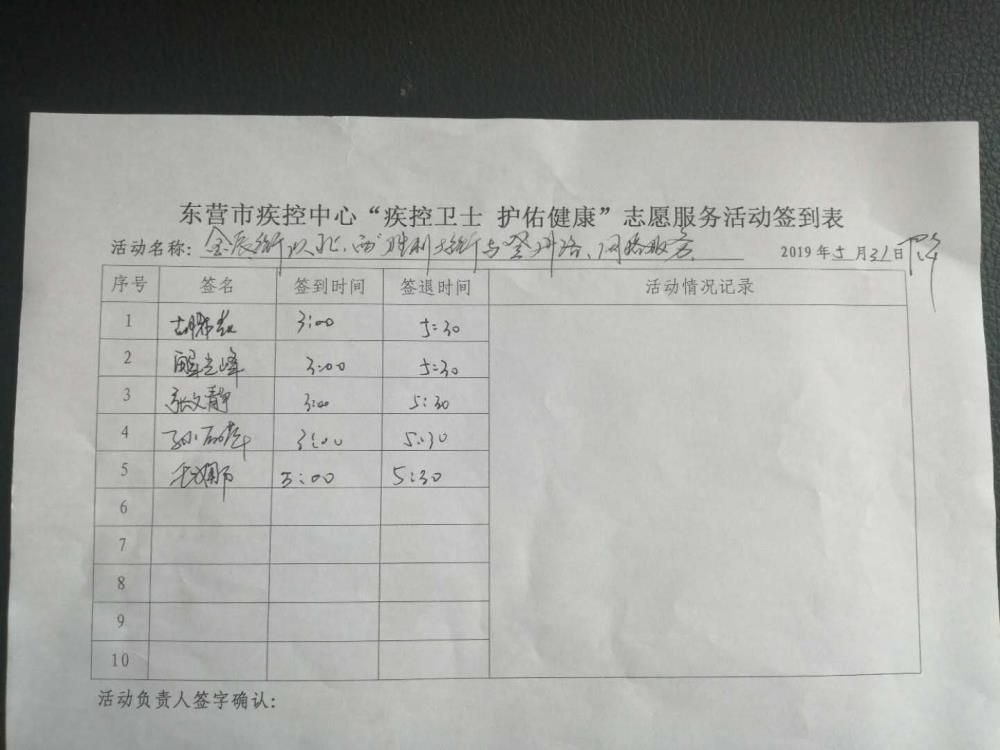 东营市疾控中心“疾控卫士 护佑健康”志愿服务活动签到表
活动名称：金辰街以北、西 胜利大街与登州路、 2019年5月31日
序号 签名 签到时间 签退时间 活动情况记录
1 3:00 5:30
2 光峰 3:00 5:30
3 张文静 3:00 5:30
4 孙 3:00 5:30
5 3:00 5:30
6
7
8
9
10
活动负责人签字确认：